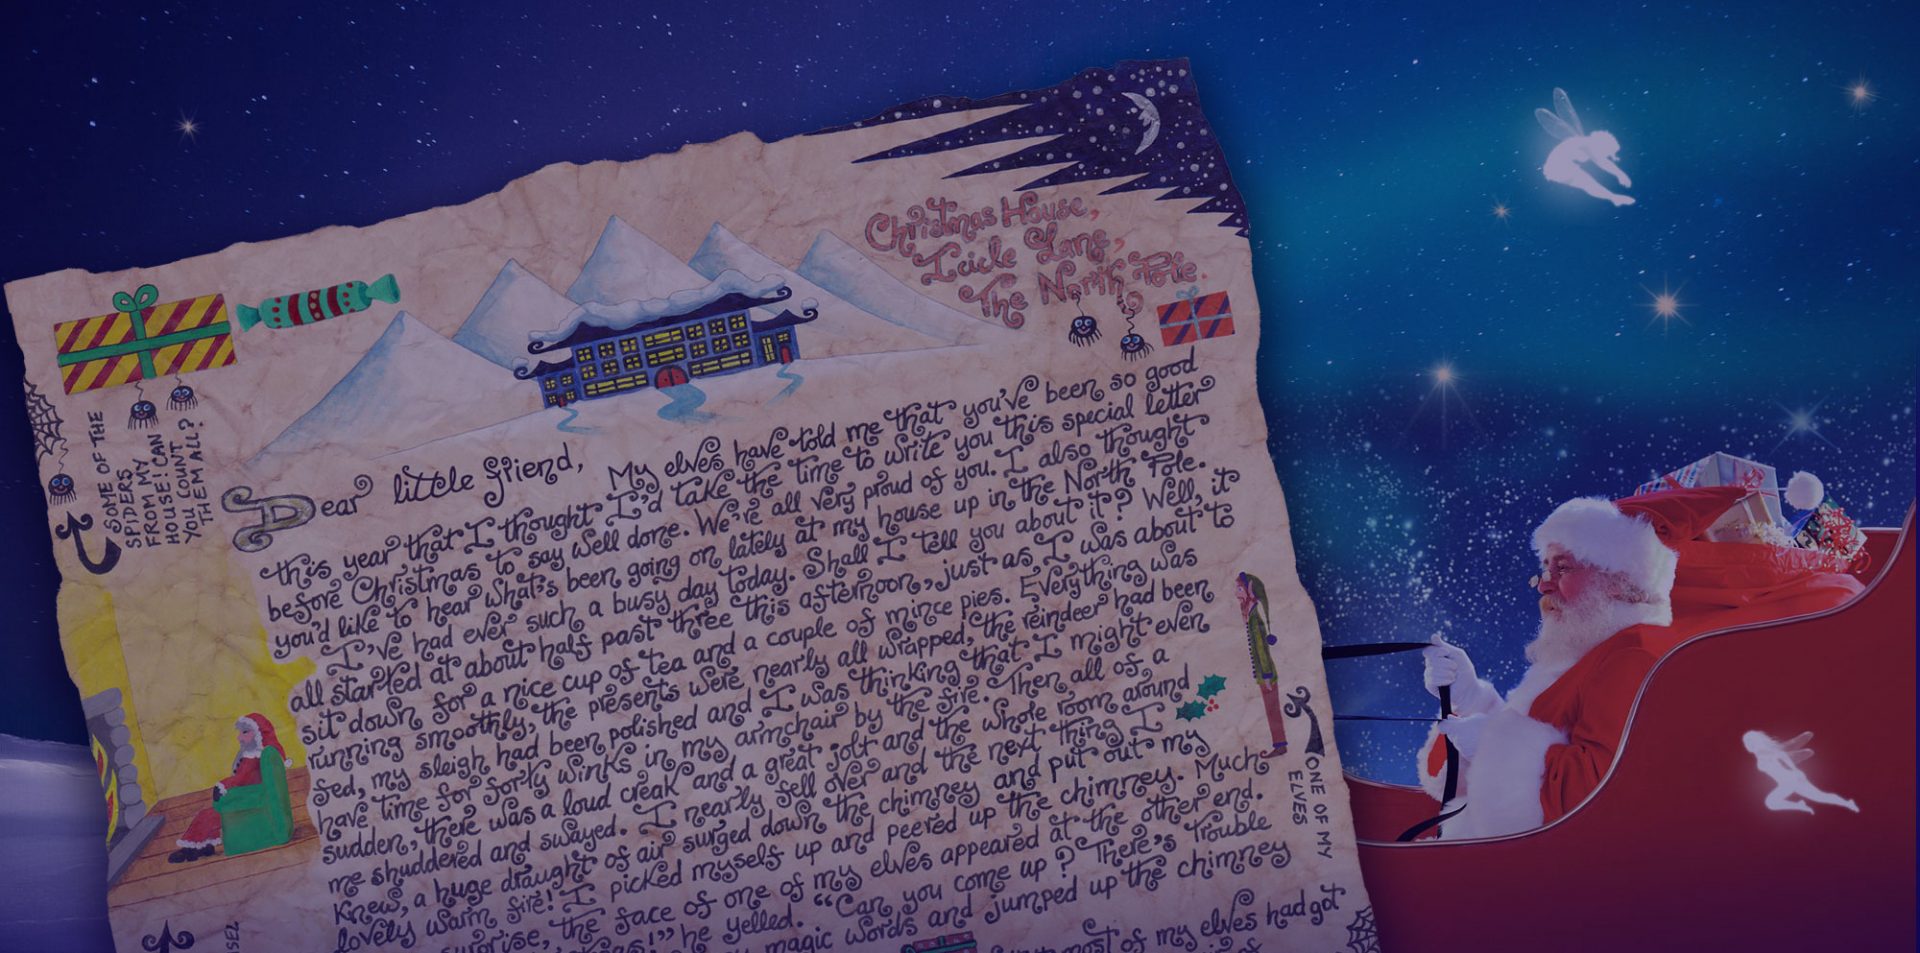 Christmas House,
Icicle Lane,
The North Pole.
SOME OF THE
SPIDERS
FROM MY
HOUSE! CAN
YOU COUNT
THEM ALL?
Dear little friend, My elves have told me that you've been so good
this year that I thought I'd take the time to write you this special letter
before Christmas to say well done. We're all very proud of you. I also thought
you'd like to hear what's been going on lately at my house up in the North Pole.
I've had ever such a busy day today. Shall I tell you about it? Well, it
all started at about half past three this afternoon, just as I was about to
sit down for a nice cup of tea and a couple of mince pies. Everything was
running smoothly, the presents were nearly all wrapped, the reindeer had been
fed, my sleigh had been polished and I was thinking that I might even
have time for forty winks in my armchair by the fire. Then all of a
sudden, there was a loud creak and a great jolt and the whole room around
me shuddered and swayed. I nearly fell over and the next thing I
knew, a huge draught of air surged down the chimney and put out my
lovely warm fire! I picked myself up and peered up the chimney. Much
surprise, the face of one of my elves appeared at the other end.
he yelled. "Can you come up? There's trouble
magic words and jumped up the chimney
most of my elves had got
ONE OF MY
ELVES